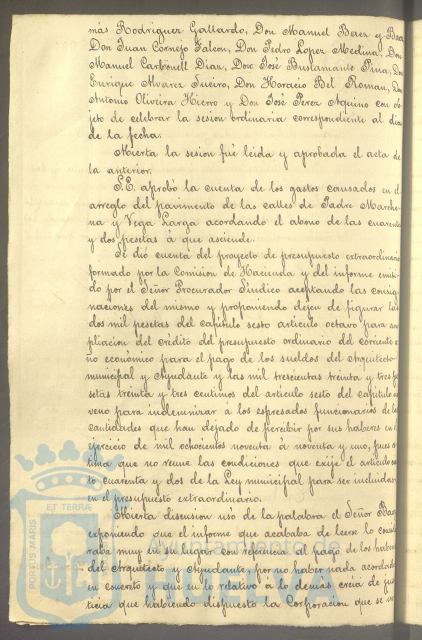 más Rodriguez Gallardo, Don Manuel Baez y Baez
Don Juan Cornejo Falcon, Don Pedro Lopez Medina, Don
Manuel Carbonell Diaz, Don José Bustamante Pina, Don
Enrique Alvarez Sueiro, Don Horacio Bel Roman, Don
Antonio Oliveira Hierro y Don José Perez Aquino con ob-
jeto de celebrar la sesion ordinaria correspondiente al dia
de la fecha.
Abierta la sesion fué leida y aprobada el acta de
la anterior.
S.E. aprobó la cuenta de los gastos causados en el
arreglo del pavimento de las calles de Padre Marche-
na y Vega Larga acordando el abono de las cuarenta
y dos pesetas á que asciende.
Se dió cuenta del proyecto de presupuesto extraordinario
formado por la Comision de Hacienda y del informe emiti-
do por el Señor Procurador Síndico aceptando las consig-
naciones del mismo y proponiendo dejen de figurar las
dos mil pesetas del capítulo sesto articulo octavo para am-
pliacion del crédito del presupuesto ordinario del corriente a-
ño económico para el pago de los sueldos del Arquitecto
municipal y Ayudante y las mil trescientas treinta y tres pe-
setas treinta y tres centimos del articulo sesto del capítulo no-
veno para indemnizar á los espresados funcionarios de las
cantidades que han dejado de percibir por sus haberes en el
ejercicio de mil ochocientos noventa á noventa y uno, pues es-
tima que no reune las condiciones que exije el articulo cien-
to cuarenta y dos de la Ley municipal para ser incluidas
en el presupuesto extraordinario.
Abierta discusion usó de la palabra el Señor Baez
exponiendo que el informe que acababa de leerse lo conside-
raba muy en su lugar con referencia al pago de los haberes
del Arquitecto y Ayudante por no haber nada acordado
en concreto y que en lo relativo á lo demás creia de jus-
ticia que habiendo dispuesto la Corporacion que se
PORTUS MARIS
ET TERRÆ
Ayuntamiento de
HUELVA